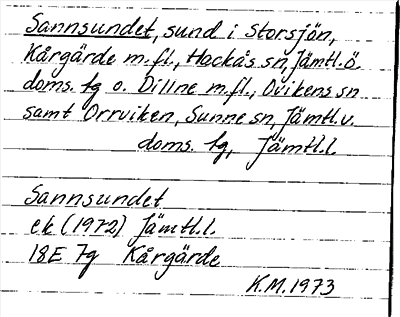 Sannsundet, sund i Storsjön,
Kårgärde m.fl., Hackås sn, Jämtl.ö.
doms. tg o. Dillne m.fl., Ovikens sn
samt Orrviken, Sunne sn, Jämtl.v.
doms. tg, Jämtl.l.
Sannsundet
ek (1972) Jämtl.l.
18E 7g Kårgärde
K.M. 1973